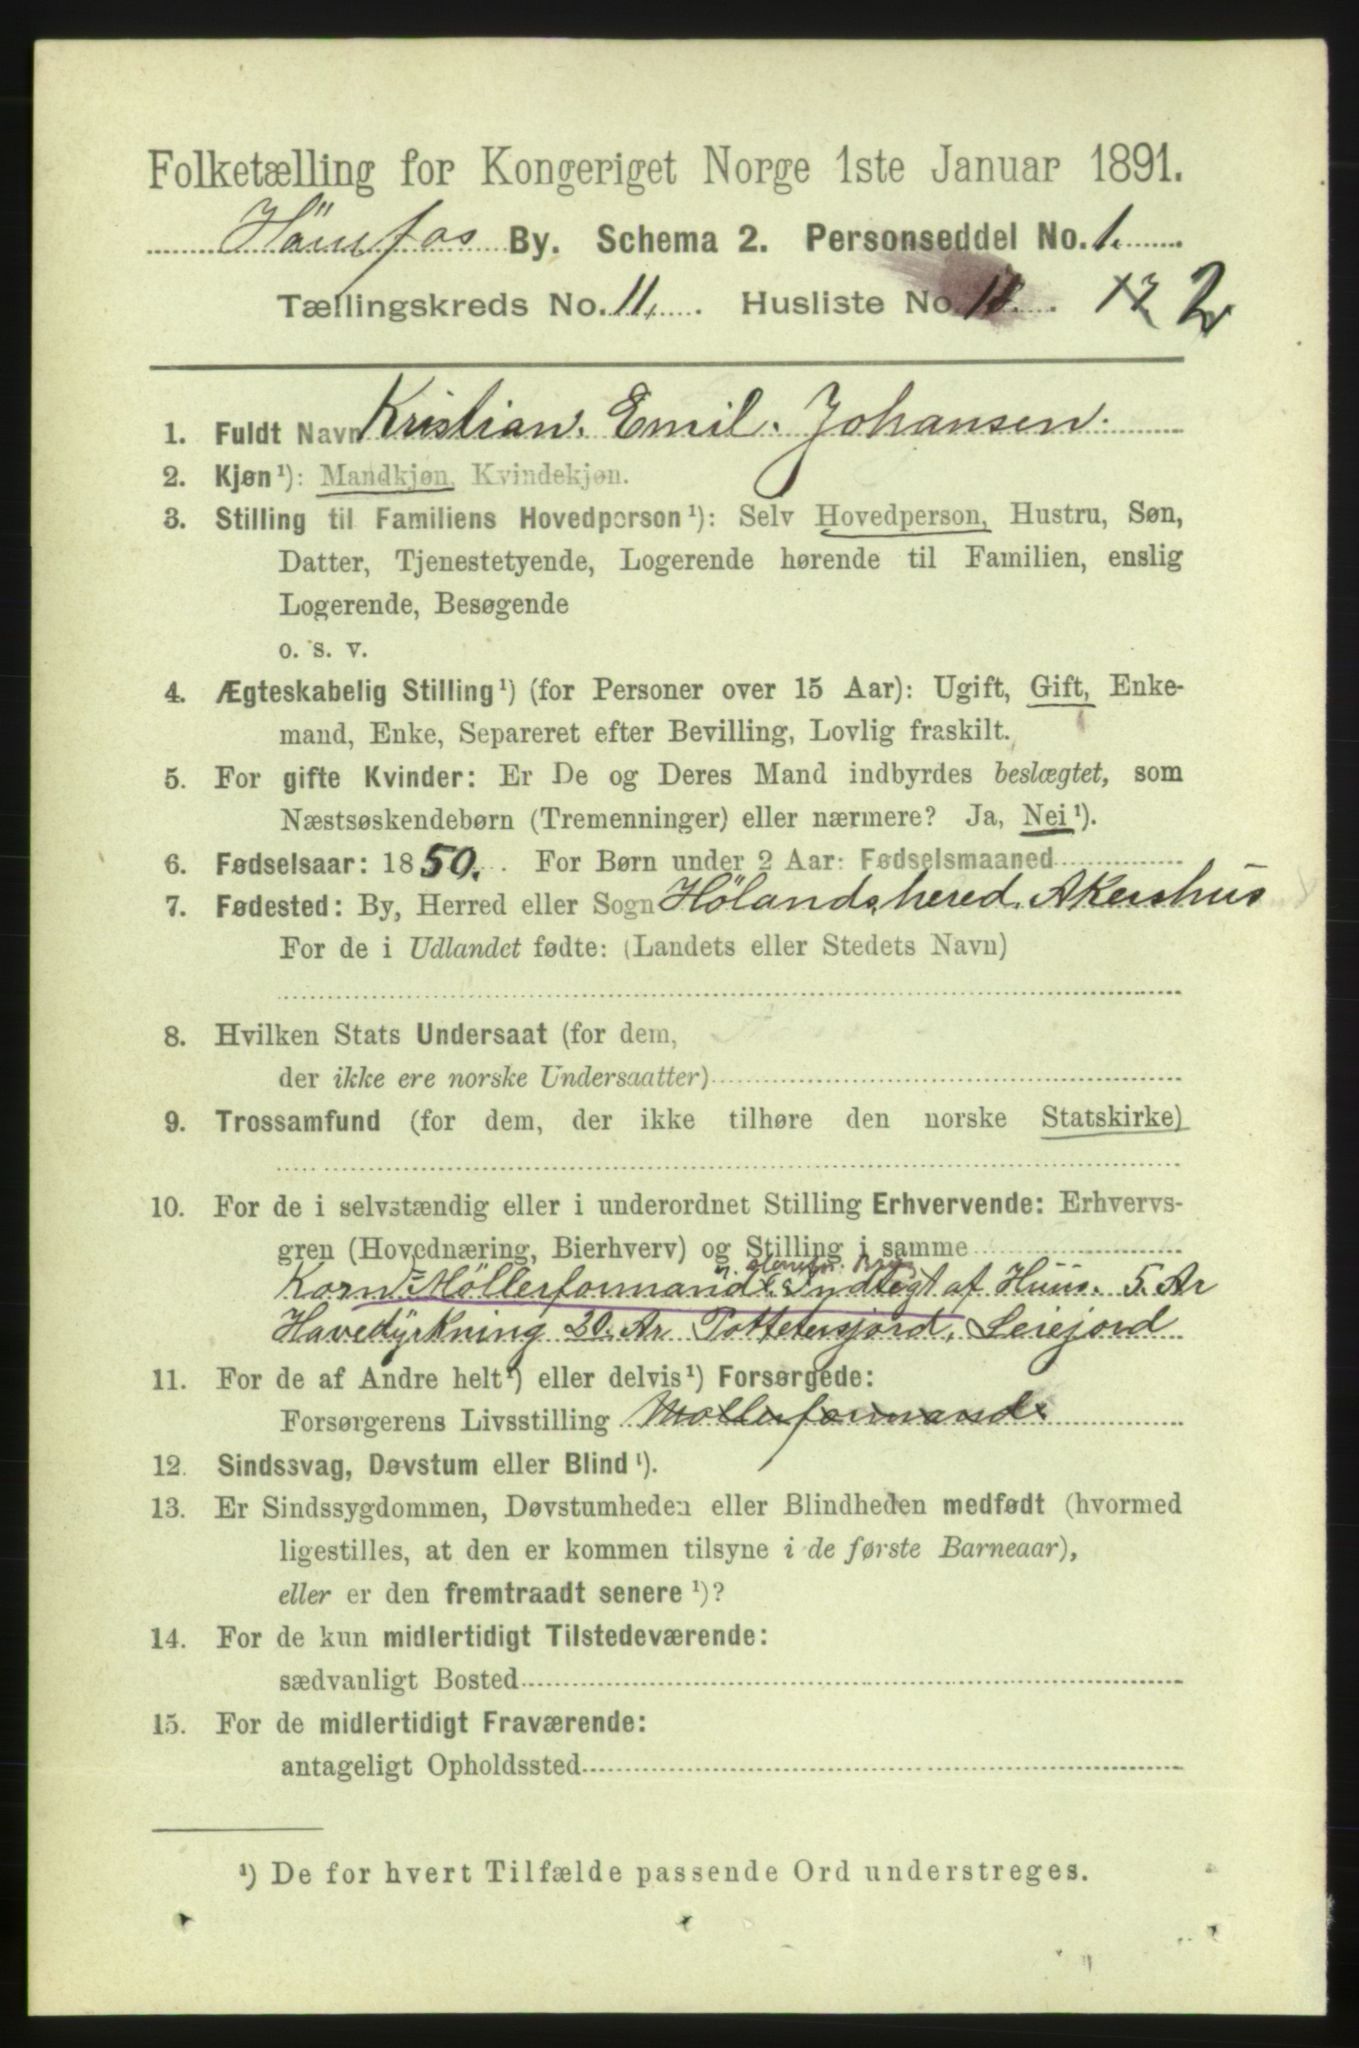 Folketælling for Kongeriget Norge 1ste Januar 1891.
Hönefos By. Schema 2. Personseddel No. 1.
Tællingskreds No. 11. Husliste No. 12 2
1. Fuldt Navn Kristian. Emil. Johansen.
2. Kjøn¹): Mandkjøn, Kvindekjøn.
3. Stilling til Familiens Hovedperson¹): Selv Hovedperson, Hustru, Søn,
Datter, Tjenestetyende, Logerende hørende til Familien, enslig
Logerende, Besøgende
o. s. v.
4. Ægteskabelig Stilling¹) (for Personer over 15 Aar): Ugift, Gift, Enke-
mand, Enke, Separeret efter Bevilling, Lovlig fraskilt.
5. For gifte Kvinder: Er De og Deres Mand indbyrdes beslægtet, som
Næstsøskendebørn (Tremenninger) eller nærmere? Ja, Nei¹).
6. Fødselsaar: 1850. For Børn under 2 Aar: Fødselsmaaned
7. Fødested: By, Herred eller Sogn Hølands, hered. Akershus
For de i Udlandet fødte: (Landets eller Stedets Navn)
8. Hvilken Stats Undersaat (for dem,
der ikke ere norske Undersaatter)
9. Trossamfund (for dem, der ikke tilhøre den norske Statskirke)
10. For de i selvstændig eller i underordnet Stilling Erhvervende: Erhvervs-
gren (Hovednæring, Bierhverv) og Stilling i samme
Korn=Möllerformand. Indtegt af Huus. 5. Ar
Havedyrkning 20. Ar Pottetersjord. Leiejord
11. For de af Andre helt¹) eller delvis¹) Forsørgede:
Forsørgerens Livsstilling Möllerformand
12. Sindssvag, Døvstum eller Blind¹).
13. Er Sindssygdommen, Døvstumheden eller Blindheden medfødt (hvormed
ligestilles, at den er kommen tilsyne i de første Barneaar),
eller er den fremtraadt senere¹)?
14. For de kun midlertidigt Tilstedeværende:
sædvanligt Bosted
15. For de midlertidigt Fraværende:
antageligt Opholdssted
¹) De for hvert Tilfælde passende Ord understreges.